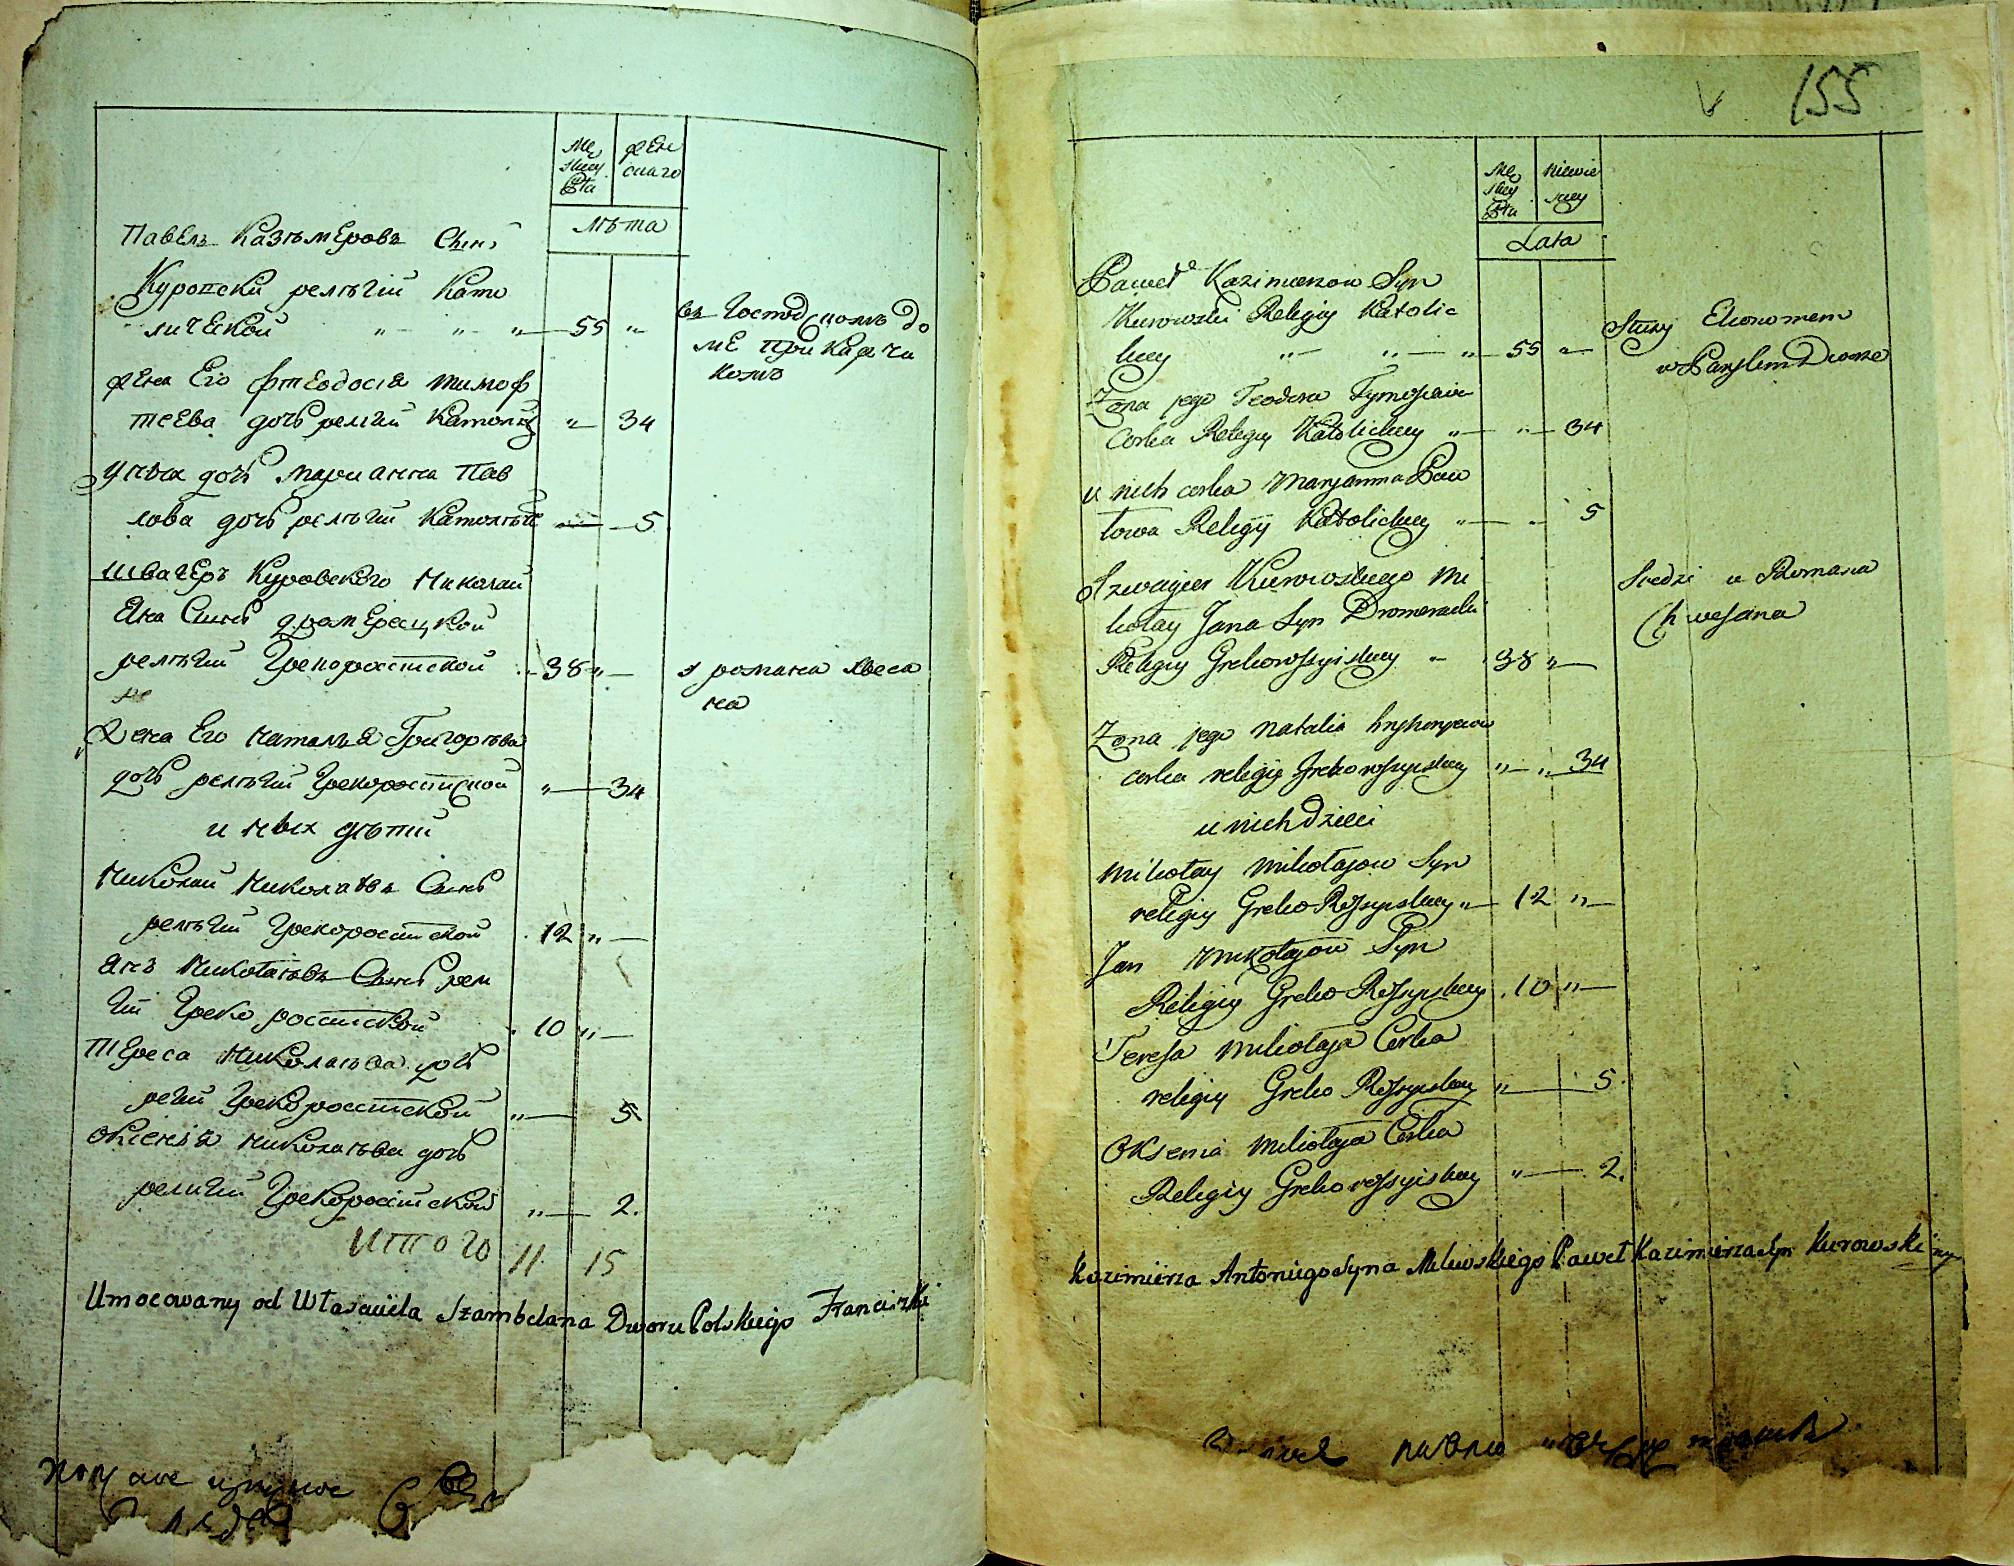 Mę skiey Płci
жен скаго
лѣта
Павелъ Казѣмеровъ Сынъ
Куровски религiи Като
лической " — " — " — 55 "
въ Господском до
ме при
жена Его Фтеодосiя тимоф
теева дочъ религiи Католиц " 34
У них дочъ марианна Пав
лова дочъ релѣгiи Католѣц — 5
швагеръ Куровского Николай
Яна Сынъ
релѣгiи Грекороссiйской 38 " —
у романа хвеса
на
жена Его наталъя Григорѣва
дочъ релѣгiи Грекороссiйской " — 34
и них дѣти
Николай Николаевъ Сынъ
релѣгiи Грекороссiйской 12 " —
Янъ Николаевъ Сынъ рели
гiи Греко россiйской 10 " —
Тереса Николаева дочъ
регiи Грекороссiйской " — 5
Оксенiя николаева дочъ
религiи Грекороссiйской " — 2.
Итого 11 15
Umocowany od Własciciela Szambelana Dworu Polskiego Franciszki
155
Mę skiey Płci
Niewie skiey
Lata
Paweł Kazimierzow Syn
Kurowski Religiy Katolic
kiey " — " — " — 55 " —
Służy Ekonomem
w Panskim Dworze
Zona jego Teodora Tymofiejewa
Corka Religiy Katolickiey " — " — 34
u nich corka Maryanna Paw
łowa Religiy Katolickiey " — 5
Szwagier Kurowskiego Mi
kołay Jana Syn
Religiy Grekorossyiskiey " 38 " —
Siedzi u Romana
Chwesana
Zona jego Natalia hryhoryewa
corka religiy Grekorossyiskiey " — " 34
u nich Dzieci
Mikołay Mikołajow Syn
religiy Greko Rossyiskiey " — 12 " —
Jan Mikołajow Syn
Religiy Greko Rossyiskiey 10 " —
Teressa Mikołaja Corka
religiy Greko Rossyiskiey " — 5
Oksenia Mikołaja Corka
Religiy Grekorossyiskiey " — 2.
Kazimierza Antoniego Syna Milewskiego Paweł Kazimierza Syn Kurowski